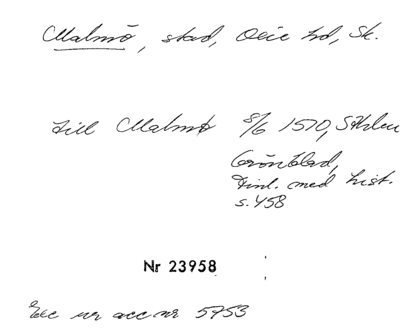 Malmö, stad, Oxie hd, Sk.
till Malmö 8/6 1570, Sthlm
Grönblad,
Finl. med hist.
s. 458
Nr 23958
Exc ur acc nr 5953